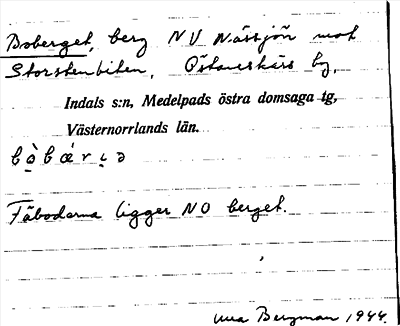 Boberget, berg NV Nässjön mot
Storstenbiten, Östanskärs by,
Indals s:n, Medelpads östra domsaga tg,
Västernorrlands län.
Fäbodarna ligger NO berget.
Una Bergman 1944.